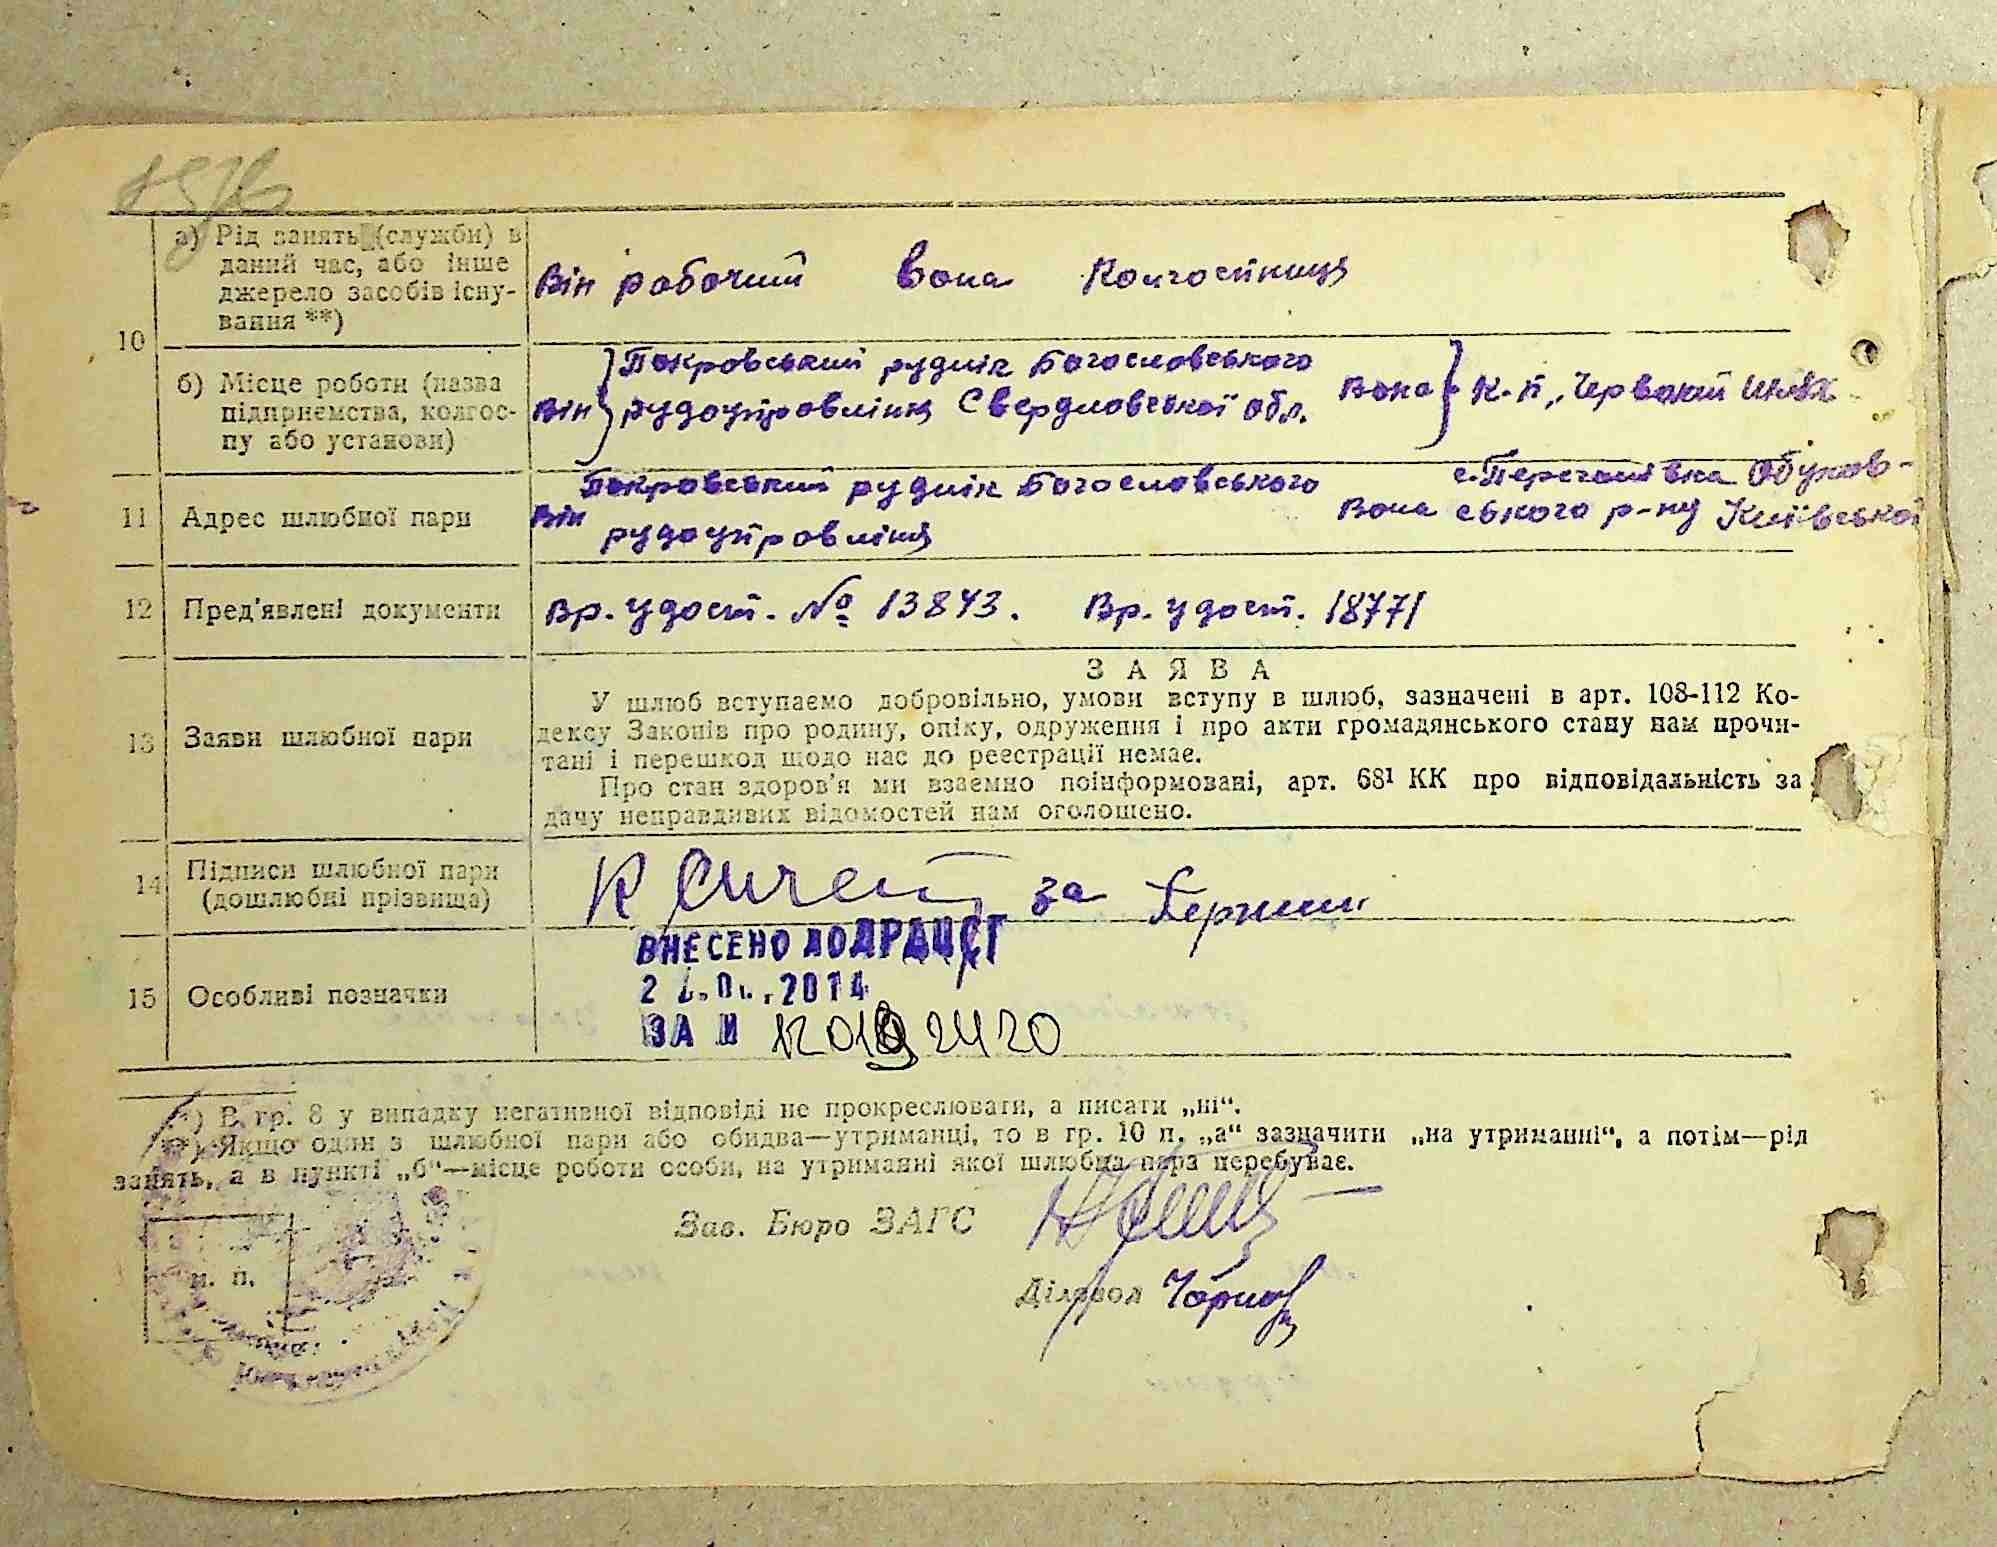 10
а) Рід занять (служби) в
даний час, або інше
джерело засобів існу-
вання **)
Він робочий Вона Колгоспниця
б) Місце роботи (назва
підприємства, колгос-
пу або установи)
Він Покровський руднік Богословського
рудоупровлінця Свердловської обл.
Вона К-п „Червоний Шлях
11 Адрес шлюбної пари
Він Покровський руднік Богословського
рудоупровлінця
Вона с. Перегонівка Обухов-
ського р-ну Київської
12 Пред'явлені документи
Вр. удост. № 13843. Вр. удост. 18771
13 Заяви шлюбної пари
ЗАЯВА
У шлюб вступаємо добровільно, умови вступу в шлюб, зазначені в арт. 108-112 Ко-
дексу Законів про родину, опіку, одруження і про акти громадянського стану нам прочи-
тані і перешкод щодо нас до реєстрації немає.
Про стан здоров'я ми взаємно поінформовані, арт. 68¹ КК про відповідальність за
дачу неправдивих відомостей нам оголошено.
14 Підписи шлюбної пари
(дошлюбні прізвища)
за
ВНЕСЕНО ДО ДРАЦСГ
2014
ЗА N
15 Особливі позначки
*) В гр. 8 у випадку негативної відповіді не прокреслювати, а писати „ні“.
**) Якщо один з шлюбної пари або обидва—утриманці, то в гр. 10 п. „а“ зазначити „на утриманні“, а потім—рід
занять, а в пункті „б“—місце роботи особи, на утриманні якої шлюбна пара перебуває.
Зав. Бюро ЗАГС
м. п.
Діловод